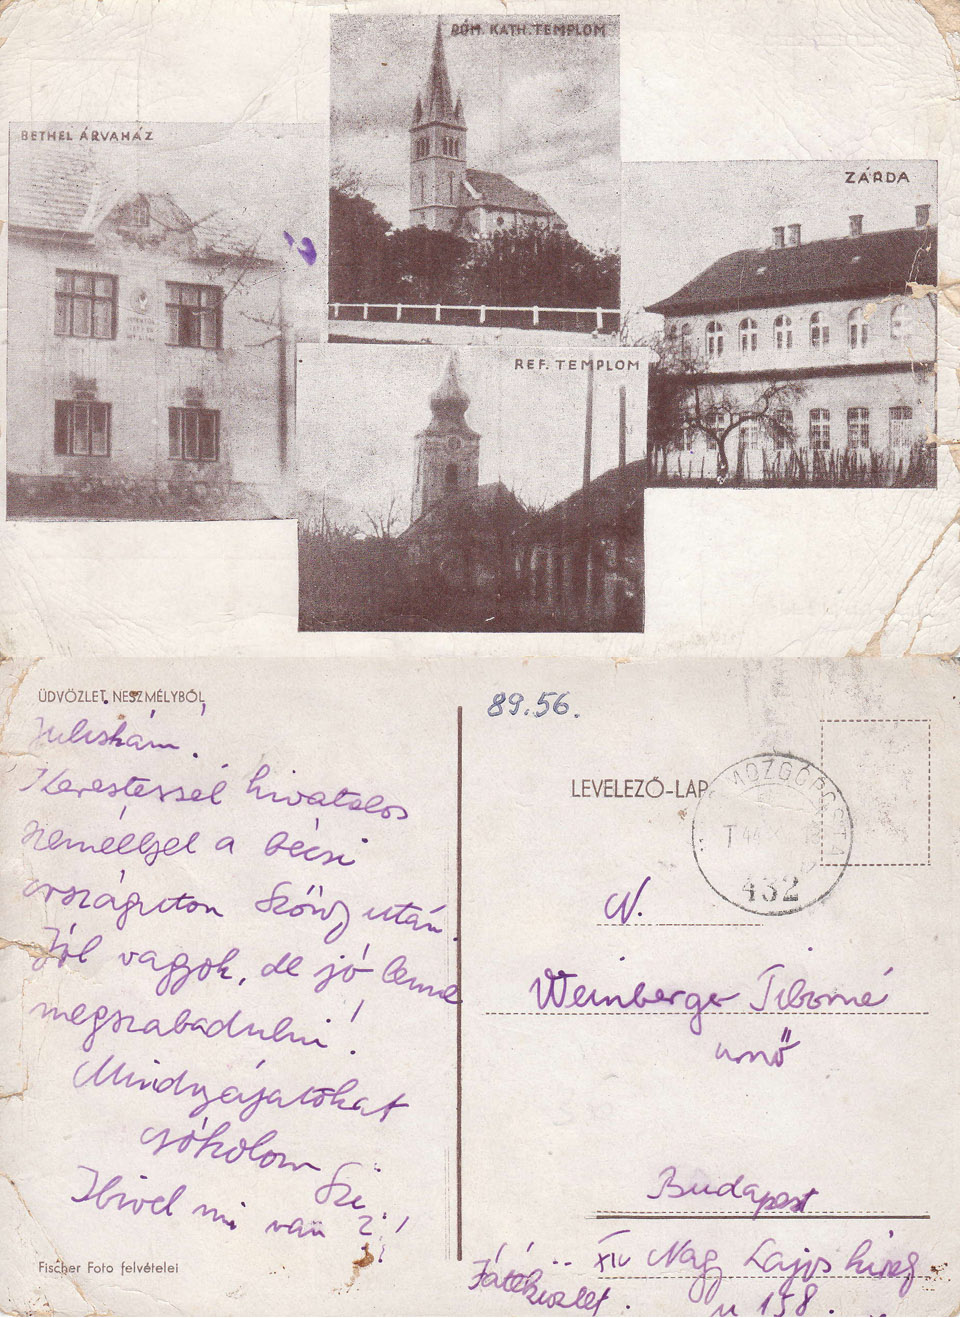 RÓM. KATH. TEMPLOM
BETHEL ÁRVAHÁZ
ZÁRDA
REF. TEMPLOM
ÜDVÖZLET NESZMÉLYBŐL
Juliskám!
Kerestessél hivatalos
személlyel a bécsi
országúton Szőny után.
Jól vagyok, de jó lenne
megszabadulni!
Mindnyájatokat
csókolom
Ibivel mi van?!
Fischer Foto felvételei
89.56.
LEVELEZŐ-LAP
MOZGÓPOSTA
432
N.
Weinberger Tiborné
urnő
Budapest
XIV Nagy Lajos király
u 158.
Játéküzlet.